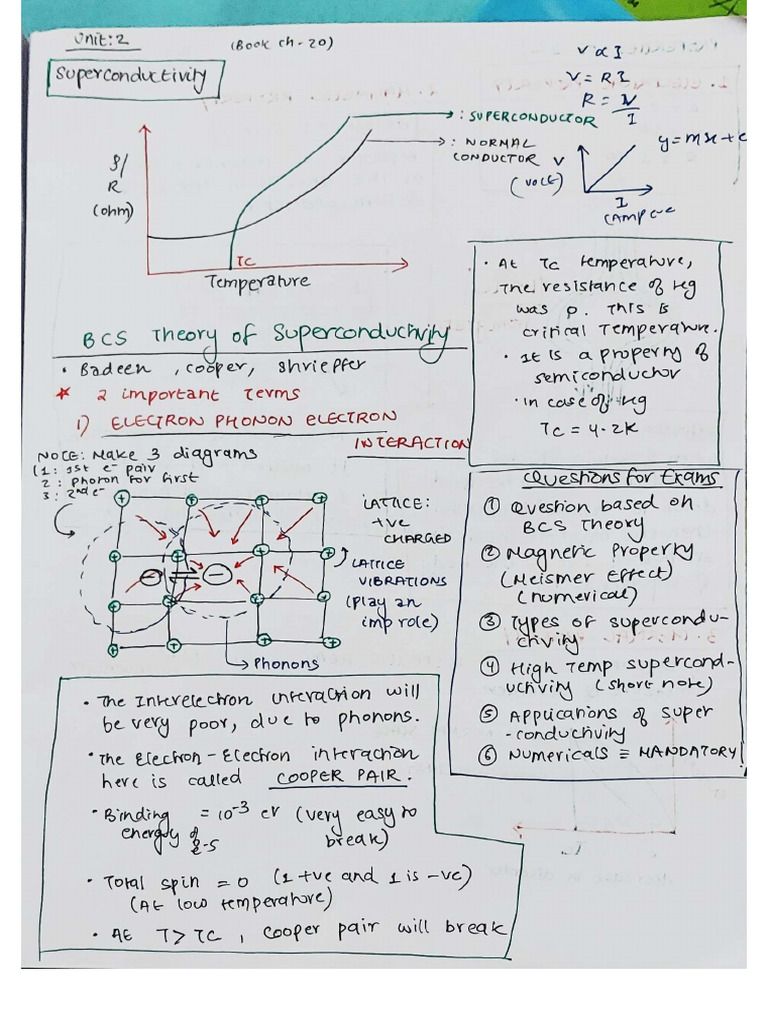 Unit: 2
(Book Ch - 20)
Superconductivity
V ∝ I
V = R.I
R = V/I
: SUPERCONDUCTOR
: NORMAL
CONDUCTOR
ρ/
R
(ohm)
TC
Temperature
V
(volt)
y = mx + c
I
(Ampere
BCS Theory of Superconductivity
• Badeen , cooper, shriepfer
* 2 important Terms
1) ELECTRON PHONON ELECTRON
INTERACTION
• At Tc temperature,
the resistance of Hg
was 0. This is
critical Temperature.
• It is a property of
semiconductor
• in case of Hg
Tc = 4.2K
NOTE: Make 3 diagrams
(1: 1st e⁻ pair
2 : phonon for first
3 : 2nd e⁻
LATTICE:
+ve
CHARGED
LATTICE
VIBRATIONS
(play an
imp role)
Phonons
Questions for Exams
① Question based on
BCS Theory
② Magnetic Property
(Meismer Effect)
(numerical)
③ Types of supercondu-
ctivity
④ High Temp supercond-
uctivity (short note)
⑤ Applications of super
-conductivity
⑥ Numericals ≡ MANDATORY
• The Interelectron interaction will
be very poor, due to phonons.
• The Electron - Electron interaction
here is called COOPER PAIR.
• Binding = 10⁻³ eV (very easy to
energy of break)
• Total spin = 0 (1 +ve and 1 is -ve)
(At low temperature)
• At T > TC , cooper pair will break